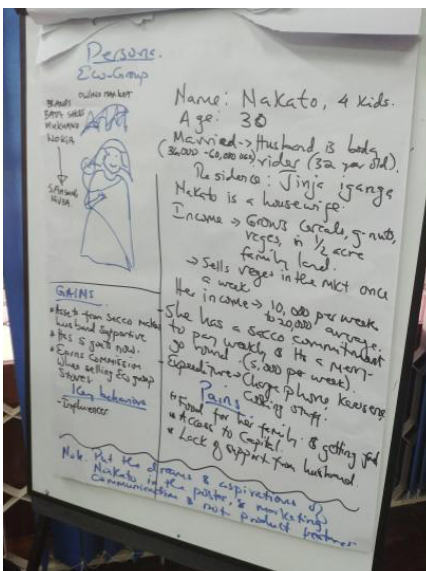 Persona
Eco-Group
OWINO MARKET
BRANDS
BATA SHOES
MUKWANO
NOKIA
SAMSUNG
NIVEA
Name: Nakato, 4 kids.
Age: 30
Married → Husband is boda
rider (32 year old).
Residence: Jinja iganga
Nakato is a housewife.
Income → Grows cereals, g-nuts,
veges, in 1/2 acre
family land.
→ Sells veges in the mkt once
a week
Her income → 10,000 per week
to 20,000 average.
She has a sacco commitment
to pay weekly & is a merry-
go round - (5,000 per week).
Expenditure → Charge phone, kerosene,
cooking stuff.
Pains
* Food for her family & getting
* Access to capital.
* Lack of support from husband
GAINS
Assets from sacco makes
husband supportive
* Hes is good now.
* Earns commission
when selling to group
stoves
Key behaviour
- Influencer
Note: Put the dreams & aspirations of
Nakato in the poster & marketing
communication & not product features